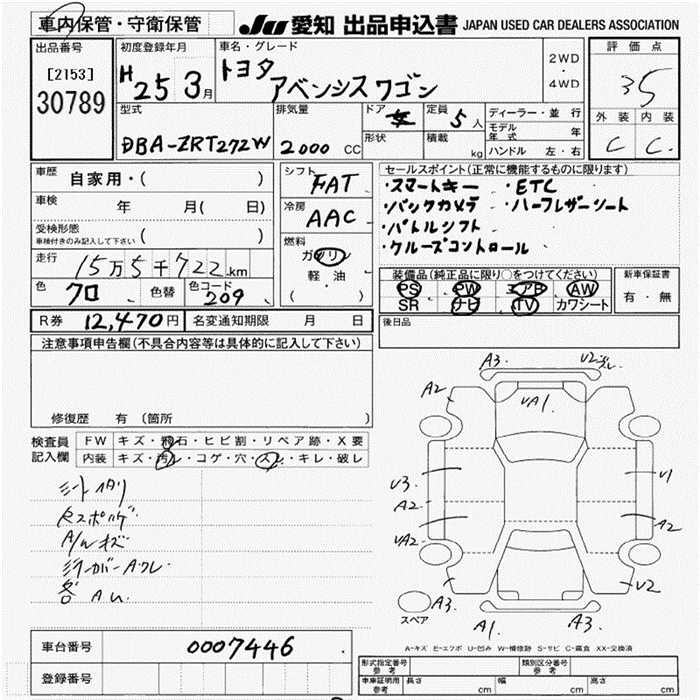 車内保管・守衛保管
JU 愛知 出品申込書 JAPAN USED CAR DEALERS ASSOCIATION
出品番号
[2153]
30789
初度登録年月
H25 3月
車名・グレード
トヨタ アベンシスワゴン
2WD
・
4WD
評価点
35
外装 内装
C C
型式
DBA-ZRT272W
排気量
2000 CC
ドア
形状
定員 5人
積載 kg
ディーラー・並行
モデル年式 年
ハンドル 左・右
車歴 自家用・( )
車検 年 月( 日)
受検形態
車検付きのみ記入して下さい ( )
走行 15万5千722km
色 クロ 色替 色コード 209
シフト FAT
冷房 AAC
燃料
ガソリン
軽・油
( )
セールスポイント(正常に機能するものに限ります)
・スマートキー ・ETC
・バックカメラ ・ハーフレザーシート
・パドルシフト
・クルーズコントロール
装備品(純正品に限り○をつけてください)
PS PW エアB AW
SR ナビ TV カワシート
新車保証書
有・無
R券 12,470円 名変通知期限 月 日
後日品
注意事項申告欄(不具合内容等は具体的に記入して下さい)
修復歴 有 (箇所
検査員記入欄
FW キズ・飛石・ヒビ割・リペア跡・X要
内装 キズ・汚レ・コゲ・穴・スレ・キレ・破レ
シートスリ
A/Wキズ
ミラーカバーAクレ
各AU
A3. U2
A2 UA1.
U3 U1
A2 A2
UA2
A3. U2
スペア
A1. A3.
A-キズ E-エクボ U-凹み W-補修跡 S-サビ C-腐食 XX-交換済
車台番号 0007446
登録番号
形式指定番号 参考
類別区分番号 参考
車車証明用 参考 長さ cm 幅 cm 高さ cm